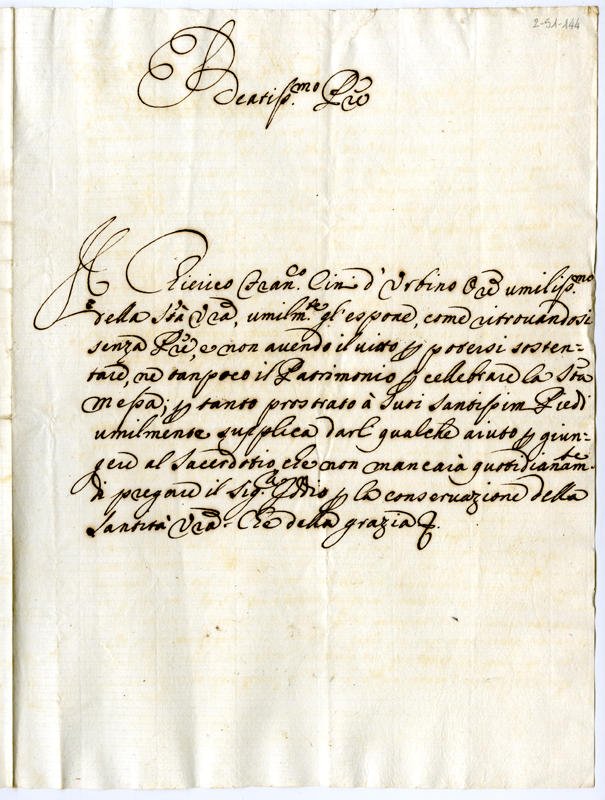 2-51-144
Beatiss.mo Pre
Il Chierico Fran.co Cini d'Urbino Ore umiliss.mo
della Stà Vrà, umilm.te gl'espone, come ritrovandosi
senza Pre, e non avendo il vitto p potersi sosten=
tare, ne tanpoco il Patrimonio p cellebrare la Sta
Messa; p tanto prostrato à Suoi Santissim Piedi
umilmente supplica darl qualche aiuto p giun=
gere al Sacerdotio, che non mancarà quotidianam.te
di pregare il Sig.re Iddio p la conservazione della
Santità Vrà. Che della grazia &.